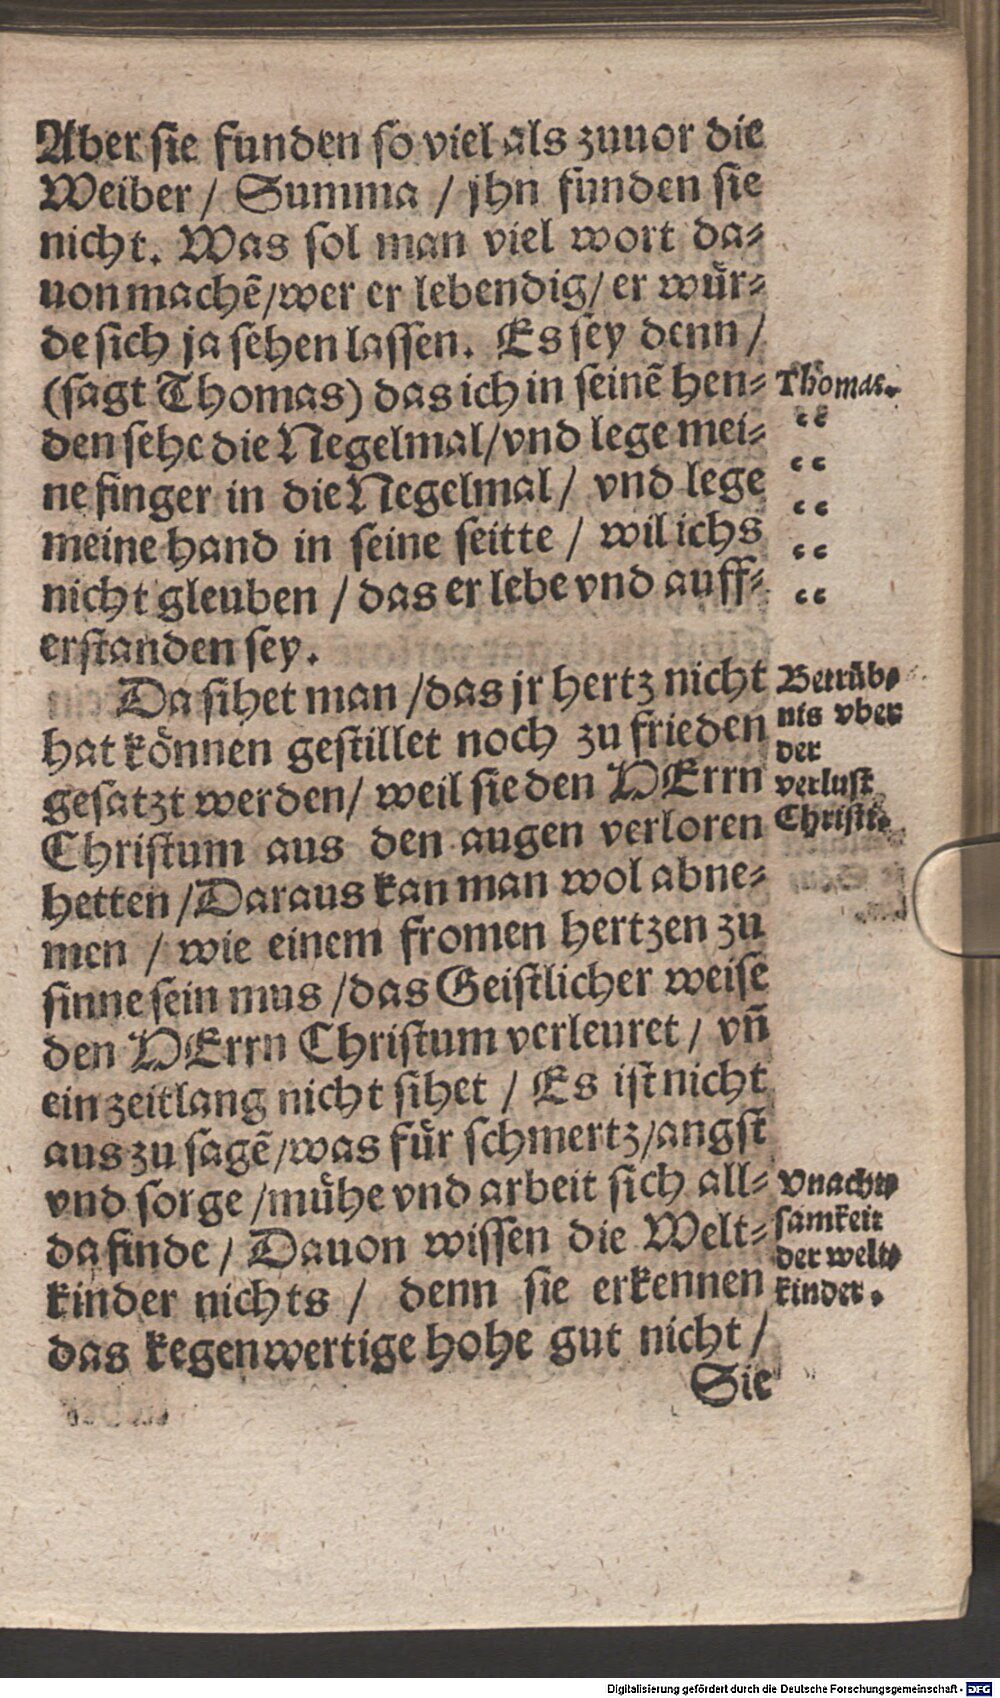 Aber sie funden so viel als zuuor die
Weiber / Summa / jhn funden sie
nicht. Was sol man viel wort da-
uon machē / wer er lebendig / er wuͤr-
de sich ja sehen lassen. Es sey denn /
(sagt Thomas) das ich in seinē hen-
den sehe die Negelmal / vnd lege mei-
ne finger in die Negelmal / vnd lege
meine hand in seine seitte / wil ichs
nicht gleuben / das er lebe vnd auff-
erstanden sey.
Thomas.
“
“
“
“
“
Da sihet man / das jr hertz nicht
hat koͤnnen gestillet noch zu frieden
gesatzt werden / weil sie den HErrn
Christum aus den augen verloren
hetten / Daraus kan man wol abne-
men / wie einem fromen hertzen zu
sinne sein mus / das Geistlicher weise
den HErrn Christum verleuret / vñ
ein zeitlang nicht sihet / Es ist nicht
aus zu sagē / was fuͤr schmertz / angst
vnd sorge / muͤhe vnd arbeit sich all-
da finde / Dauon wissen die Welt-
kinder nichts / denn sie erkennen
das kegenwertige hohe gut nicht /
Betruͤb-
nis vber
der
verlust
Christi.
Vnacht-
samkeit
der welt-
kinder.
Sie
Digitalisierung gefördert durch die Deutsche Forschungsgemeinschaft - DFG